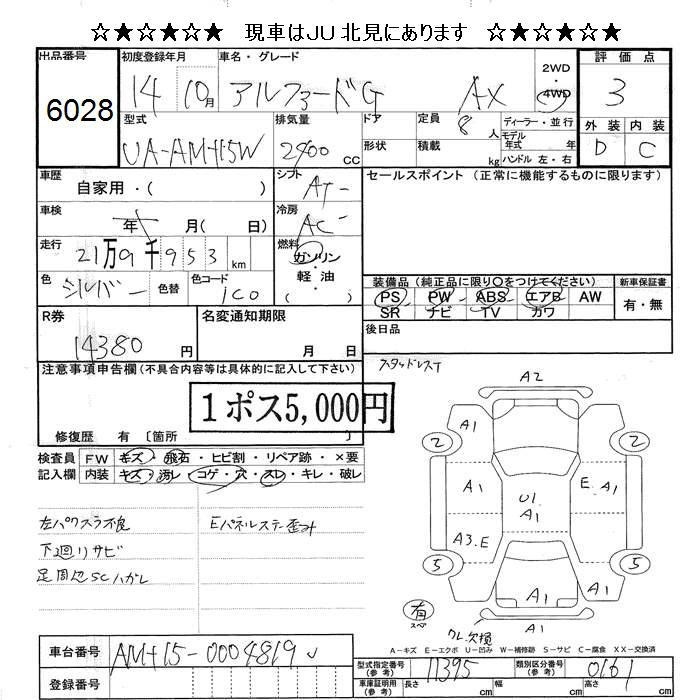 ☆★☆★☆★ 現車はJU北見にあります ☆★☆★☆★
出品番号 初度登録年月 車名・グレード 2WD・4WD 評価点
6028 14 10月 アルファードG AX 3
型式 排気量 ドア 定員 8人 ディーラー・並行 外装 内装
UA-AMH15W 2400cc 形状 積載 kg モデル年式 年 ハンドル 左・右 D C
車歴 自家用・( ) シフト AT セールスポイント(正常に機能するものに限ります)
車検 年 月( 日) 冷房 AC
走行 21万9千953km 燃料 ガソリン・軽・油( )
色 シルバー 色替 色コード 1C0
装備品(純正品に限り○をつけてください) 新車保証書
PS PW ABS エアB AW 有・無
SR ナビ TV カワ
R券 名変通知期限 後日品
14380円 月 日 スタッドレスT
注意事項申告欄(不具合内容等は具体的に記入して下さい)
1ポス5,000円
修復歴 有 〔箇所 〕
検査員記入欄 FW キズ・飛石・ヒビ割・リペア跡・×要
内装 キズ・汚レ・コゲ・穴・スレ・キレ・破レ
左パワスラ不良 Eパネルステー歪み
下廻リサビ
足周辺SCハガレ
A2
A1
2 2
A1 U1 A1 E A1
A3.E
5 5
A1 A1
有 スペア
A1
A-キズ E-エクボ U-凹み W-補修跡 S-サビ C-腐食 XX-交換済
車台番号 AMH15-0004819
登録番号
型式指定番号(参考) 11395 類別区分番号(参考) 0161
車庫証明用(参考) 長さ cm 幅 cm 高さ cm